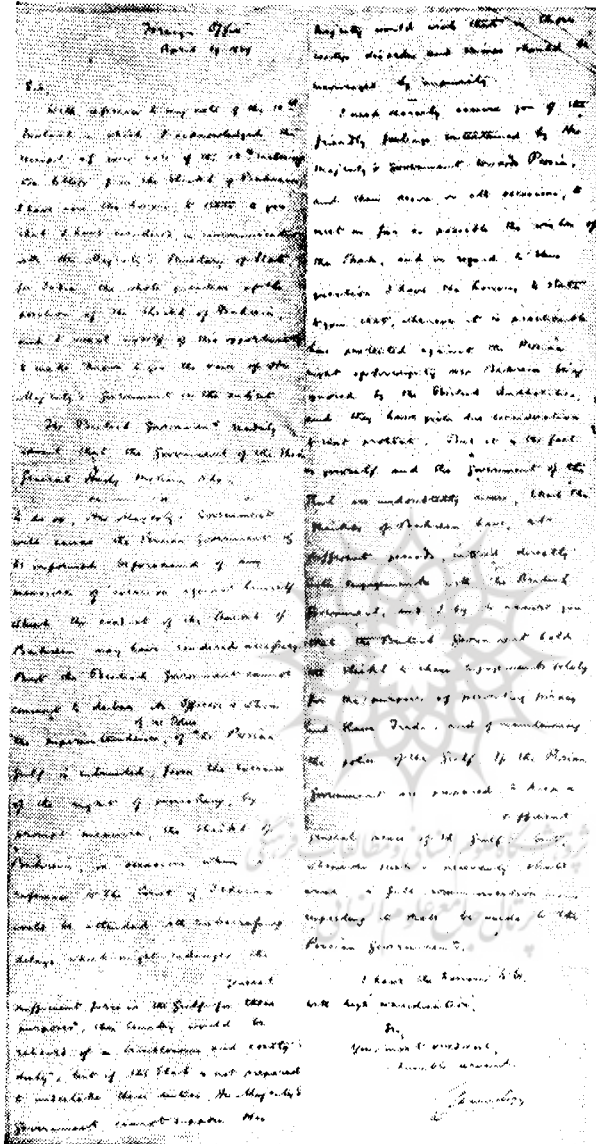 Foreign Office
April 29 1869
Sir
With reference to my note of the
instant in which I acknowledged the
receipt of your note of the 13th instant
two letters from the Sheikh of Bahrein,
I have now the honour to state to you
that I have considered, in communication
with Her Majesty's Secretary of State
for India the whole question of the
position of the Sheikh of Bahrein,
and I avail myself of this opportunity
to make known to you the views of Her
Majesty's Government on the subject
The British Government readily
admit that the Government of the Shah
General
to do so, Her Majesty's Government
will cause the Persian Government to
be informed beforehand of any
measures of coercion against himself
which the conduct of the Sheikh of
Bahrein may have rendered necessary
But the British Government cannot
consent to debar its Officers to whom
of the Police
the superintendence, of the Persian
Gulf is entrusted, from the exercise
of the right of punishing, by
prompt measures, the Sheikh of
Bahrein, on occasions when a
reference to the Court of Teheran
would be attended with embarrassing
delays which might endanger the
general
sufficient force in the Gulf for these
purposes, this Country would be
relieved of a troublesome and costly
duty, but if the Shah is not prepared
to undertake these duties, Her Majesty's
Government cannot suppose His
Majesty would wish that in those
waters disorder and crimes should be
encouraged by impunity.
I need scarcely assure you of the
friendly feelings entertained by Her
Majesty's Government towards Persia,
and their desire on all occasions, to
meet as far as possible the wishes of
the Shah, and in regard to this
question I have the honour to state
to you that, whenever it is practicable
has protested against the Persian
right of sovereignty over Bahrein being
ignored by the British Authorities,
and they have given due consideration
to that protest. But
yourself and the Government of the
Shah are undoubtedly aware, that the
Sheikhs of Bahrein have, at
different periods entered directly
into engagements with the British
Government, and I beg to assure you
that the British Government hold
the Sheikh to these engagements solely
for the purposes of preventing piracy
and Slave Trade, and of maintaining
the police of the Gulf If the Persian
Government are prepared to keep a
sufficient
general peace of the Gulf but,
whenever such a necessity should
arise a full communication
respecting it shall be made to the
Persian Government.
I have the honour to be
with high consideration,
Sir,
Your most obedient,
humble servant.
Clarendon
پژوهشگاه علوم انسانی و مطالعات فرهنگی
پرتال جامع علوم انسانی